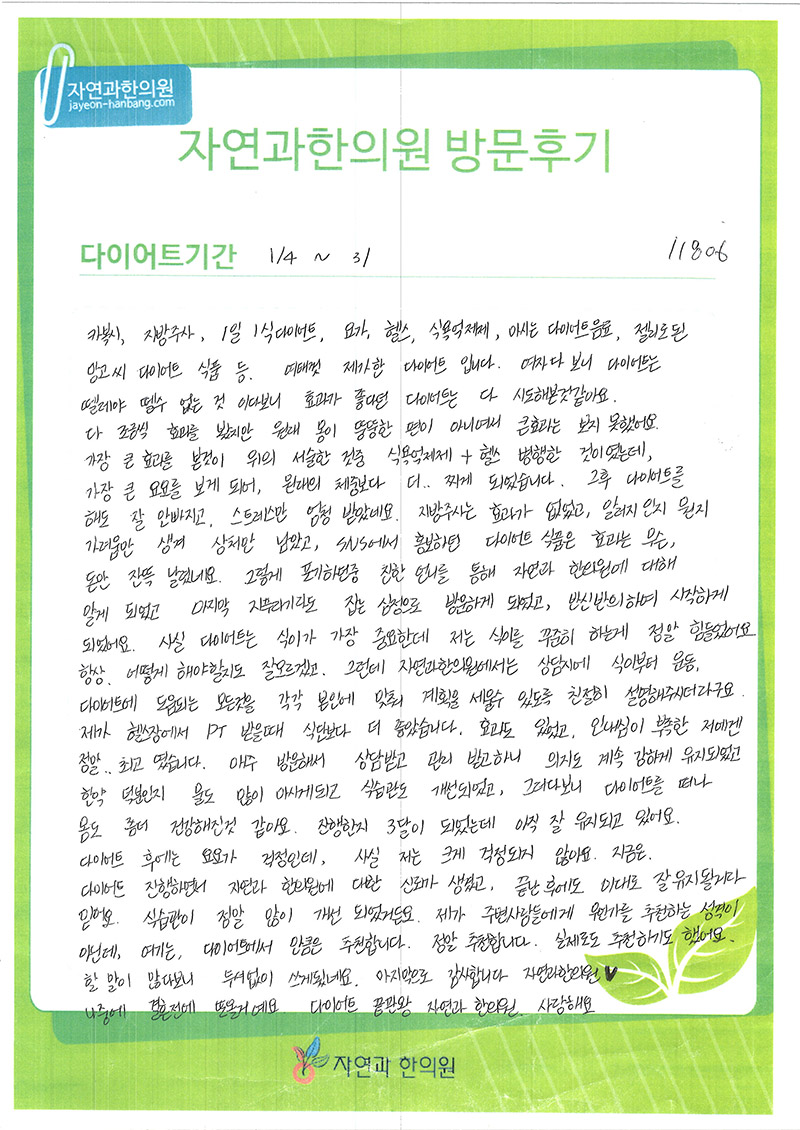 자연과한의원
jayeon-hanbang.com
자연과한의원 방문후기
다이어트기간 1/4 ~ 3/ 11806
카복시, 지방주사, 1일 1식다이어트, 요가, 헬스, 식욕억제제, 마시는 다이어트음료, 젤리로된
망고씨 다이어트 식품 등. 여태껏 제가한 다이어트 입니다. 여자다 보니 다이어트는
뗄레야 뗄수 없는 것 이다보니 효과가 좋다던 다이어트는 다 시도해본것같아요.
다 조금씩 효과를 봤지만 원래 몸이 뚱뚱한 편이 아니여서 큰효과는 보지 못했어요.
가장 큰 효과를 본것이 위의 서술한 것중 식욕억제제 + 헬스 병행한 것이였는데,
가장 큰 요요를 보게 되어, 원래의 체중보다 더.. 찌게 되었습니다. 그후 다이어트를
해도 잘 안빠지고, 스트레스만 엄청 받았네요. 지방주사는 효과가 없었고, 알러지인지 뭔지
가려움만 생겨 상처만 남았고, SNS에서 홍보하던 다이어트 식품은 효과는 무슨,
돈만 잔뜩 날렸네요. 그렇게 포기하던중 친한 언니를 통해 자연과 한의원에 대해
알게 되었고 마지막 지푸라기라도 잡는 심정으로 방문하게 되었고, 반신반의하며 시작하게
되었어요. 사실 다이어트는 식이가 가장 중요한데 저는 식이를 꾸준히 하는게 정말 힘들었어요
항상. 어떻게 해야할지도 잘모르겠고. 그런데 자연과한의원에서는 상담시에 식이부터 운동,
다이어트에 도움되는 모든것을 각각 본인에 맞춰 계획을 세울수 있도록 친절히 설명해주시더라구요.
제가 헬스장에서 PT 받을때 식단보다 더 좋았습니다. 효과도 있었고, 인내심이 부족한 저에겐
정말.. 최고 였습니다. 매주 방문해서 상담받고 관리 받고하니 의지도 계속 강하게 유지되었고
한약 덕분인지 물도 많이 마시게되고 식습관도 개선되었고, 그러다보니 다이어트를 떠나
몸도 좀더 건강해진것 같아요. 진행한지 3달이 되었는데 아직 잘 유지되고 있어요.
다이어트 후에는 요요가 걱정인데, 사실 저는 크게 걱정되지 않아요. 지금은.
다이어트 진행하면서 자연과 한의원에 대한 신뢰가 생겼고, 끝난 후에도 이대로 잘유지될거라
믿어요. 식습관이 정말 많이 개선 되었거든요. 제가 주변사람들에게 뭔가를 추천하는 성격이
아닌데, 여기는, 다이어트에서 만큼은 추천합니다. 정말 추천합니다. 실제로도 추천하기도 했어요.
할 말이 많다보니 두서없이 쓰게됬네요. 마지막으로 감사합니다 자연과한의원♥
나중에 결혼전에 또올거예요. 다이어트 끝판왕 자연과 한의원. 사랑해요
자연과 한의원